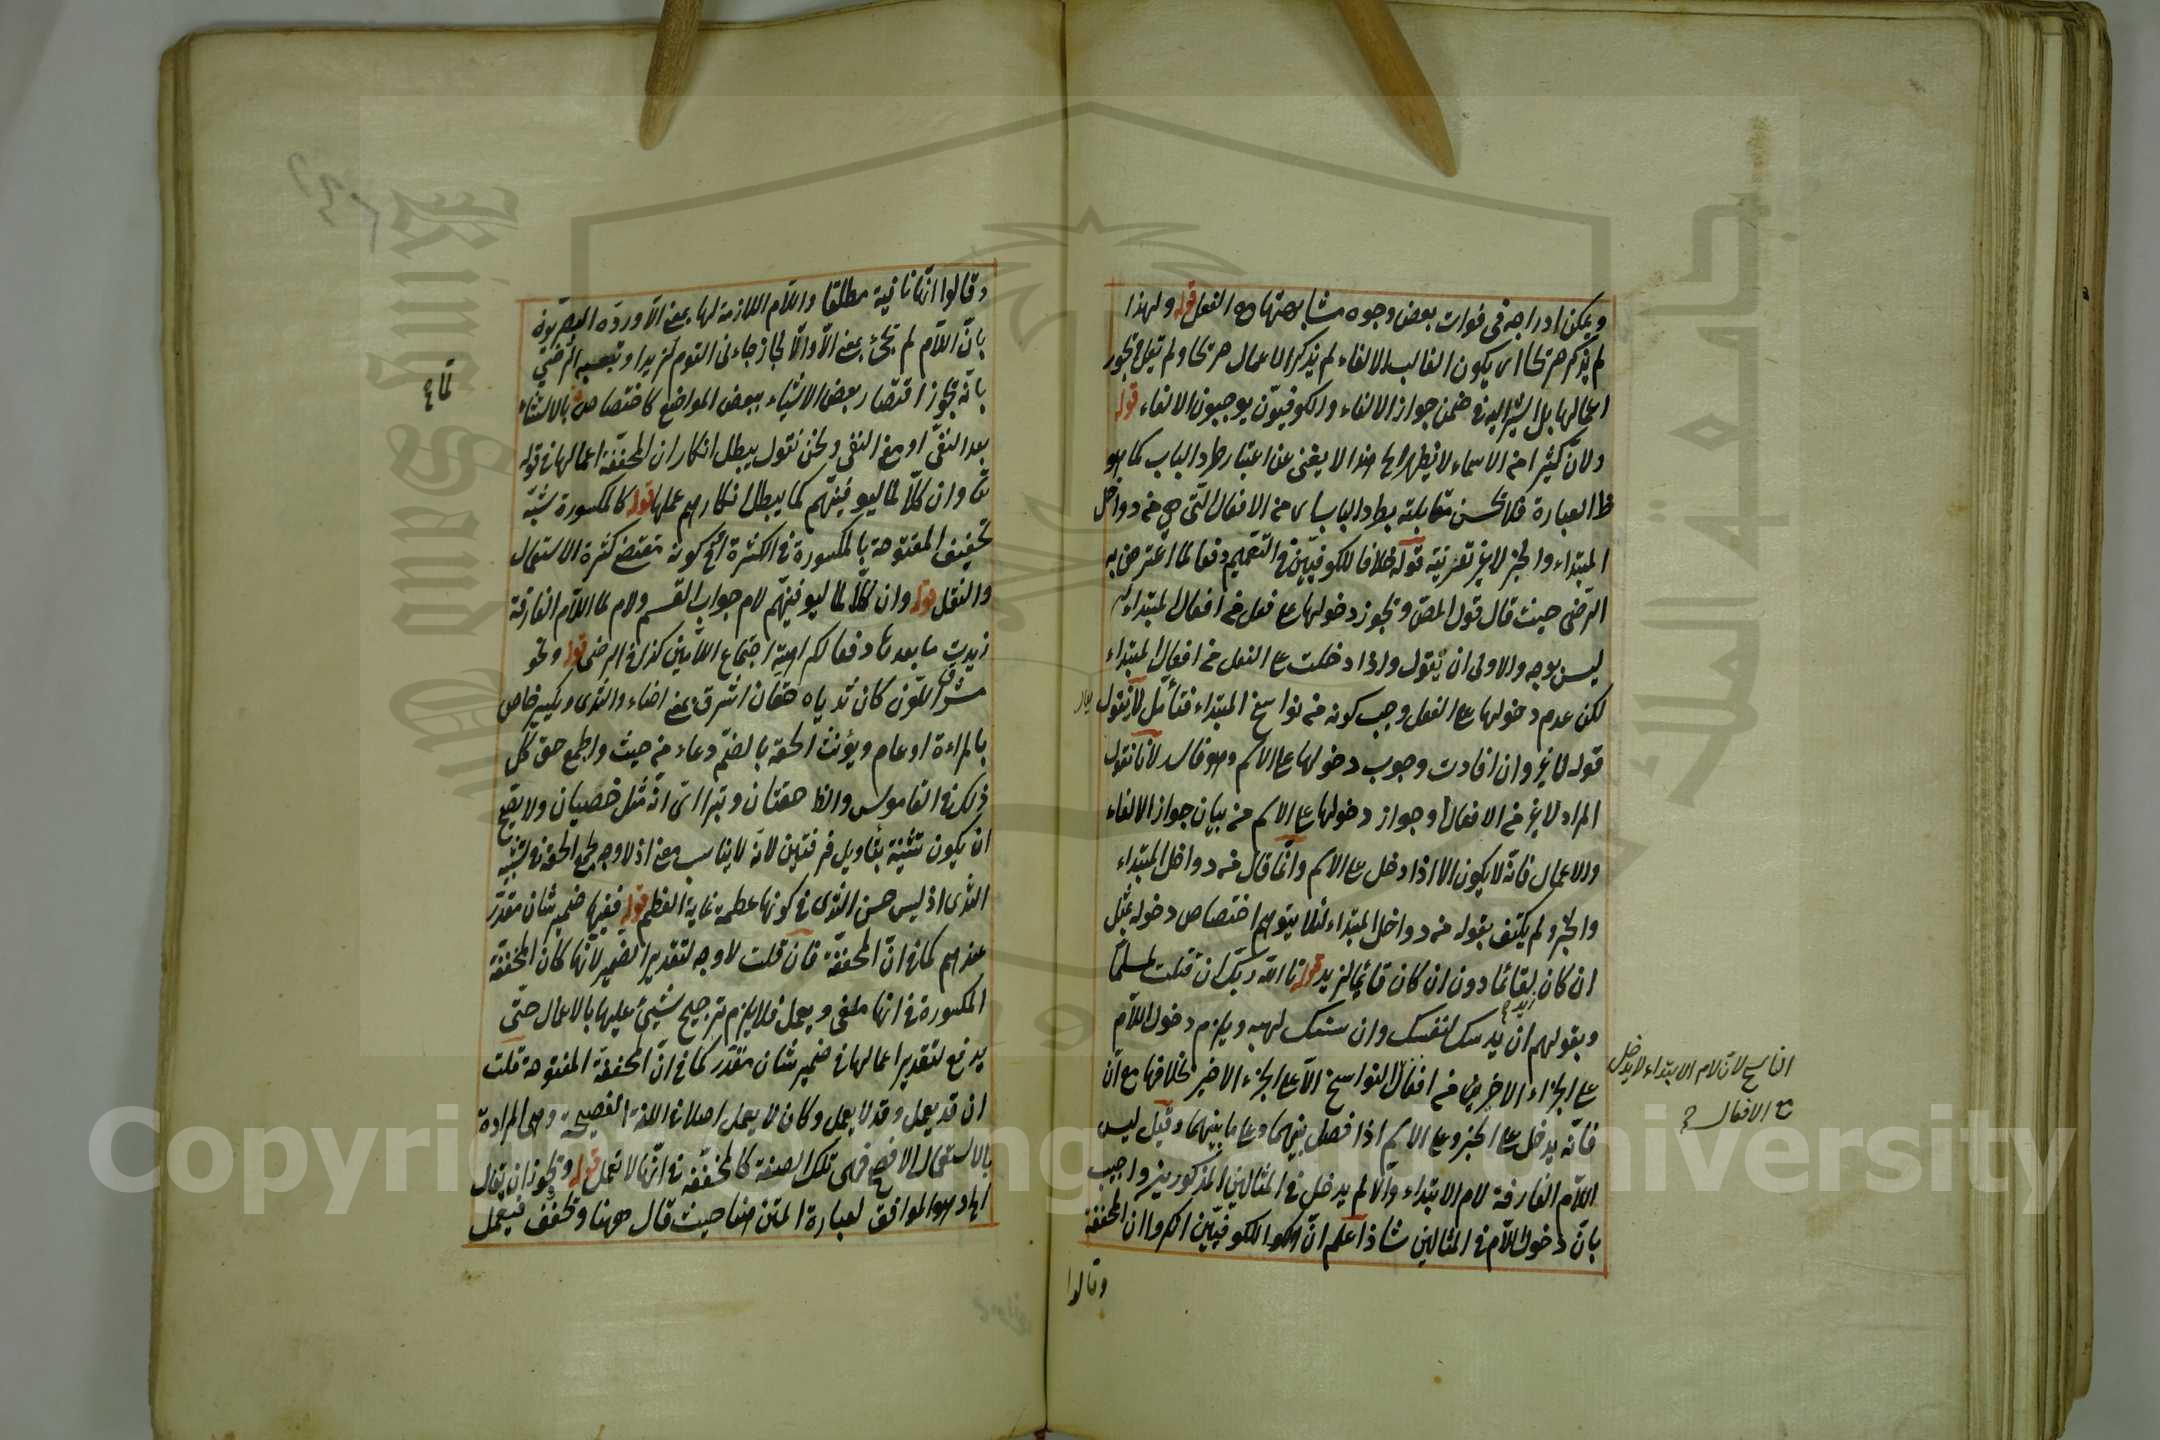 ويمكن ادراجه في فوات بعض وجوه مشابهتها مع الفعل قوله ولهذا
لم يذكر صريحا اى يكون الغالب الالغاء لم يذكر الاعمال صريحا ولم يقل ويجوز
اعمالها بل اشير اليه في ضمن جواز الالغاء والكوفيّون يوجبون الالغاء قوله
ولانّ كثيرا من الاسماء لا يظهر اه هذا لا يغني عن اعتبار طرد الباب كما هو
ظ العبارة فلا يحسن مقابلته بطرد الباب اى من الافعال الّتي هي من دواخل
المبتداء والخبر لا غير بقرينة قوله خلافا للكوفيّين في التّعميم دفعا لما اعترض به
الرّضى حيث قال قول المص ويجوز دخولها على فعل من افعال المبتداء
ليس بوجه والاولى ان يقول واذا دخلت على الفعل من افعال المبتداء
لكن عدم دخولها على الفعل وجب كونه من نواسخ المبتداء فتأمّل لا نقول يقال
قوله لا غير وان افادت وجوب دخولها على الاسم وهو فاسد لانّا نقول
المراد لا غير من الافعال وجواز دخولها على الاسم من بيان جواز الالغاء
والاعمال فانّه لا يكون الا اذا دخل على الاسم وانّما قال من دواخل المبتداء
والخبر ولم يكتف بقوله من دواخل المبتداء لئلا يتوهم اختصاص دخوله بمثل
ان كان لقائما دون ان كان قائما لزيد قوله تالله ربّك ان قتلت لمسلما
وبقولهم ان يزينك لنفسك وان يشينك لهيه ويلزم دخول اللّام
على الجزء الاخير من افعال النواسخ الآ على الجزء الاخير بخلافها مع انّ
فانّه يدخل على الخبر وعلى الاسم اذا فصل بينهما وعلى ما بينهما وقيل ليس
اللّام الفارقة لام الابتداء والّا لم يدخل في المثالين المذكورين واجيب
بانّ دخول اللّام في المثالين شاذ اعلم انّ الكوفيّين انكروا ان المخففة
وقالوا
الناسخ لانّ لام الابتداء لا يدخل
على الافعال
وقالوا انّها نافية مطلقا واللّام اللازمة لها بمعنى الّا وردّه البصريون
بانّ اللّام لم تجئ بمعنى الّا والّا لجاز جاءنى القوم لزيدا وتعقبه الرّضيّ
بانّه يجوز اقتصار بعض الاشياء ببعض المواضع كاختصاص لمّا بالاستثناء
بعد النفي او مع النفى ونحن نقول يبطل انكار ان المخففة اعمالها في قوله
تعا وان كلّا لمّا ليوفّينّهم كما يبطل انكارهم عملها قوله كالمكسورة شبّه
تخفيف المفتوحة بالمكسورة في الكثرة اى كونه مقتضى كثرة الاستعمال
والثقل قوله وان كلّا لما ليوفينّهم لام جواب القسم ولام لما اللّام الفارقة
زيدت ما بعدها دفعا لكراهية اجتماع اللّامين كذا في الرضى قوله ونحو
مشرق اللّون كان ثدياه حقان اشرق بمعنى اضاء والثدى ويكسر خاص
بالمراءة او عام ويؤنّث الحقة بالضمّ وعاء من خشب والجمع حق كل
ذلك في القاموس والظ حقتان ويتراأى انّه مثل خصيان ولا يصحّ
ان يكون تثنية بتأويل فرقتين لانّه لا يناسب معنى اذ لا وجه لجمع الحقة في تشبيه
الثدى اذ ليس حسن الثدى في كونها عظمة غاية العظم قوله ففيها ضمير شان مقدّر
عندهم كما في انّ المخففّة فان قلت لا وجه لتقدير الضمير لانّها كان المخففة
المكسورة في انها ملغى ويعمل فلا يلزم ترجيح شئ عليها بالاعمال حتّى
يدفع لتقدير اعمالها في ضمير شان مقدّر كما في انّ المخففة المفتوحة قلت
ان قد يعمل وقد لا يعمل وكان لا يعمل اصلا في اللغة الفصيحة وهى المرادة
بالاستعمال الافصح فهى تلك الصفة كالمخففّة في انّها لا تعمل قوله ويجوز ان يقال
اه وهو الموافق لعبارة المتن هنا حيث قال ههنا وتخفف فيعمل